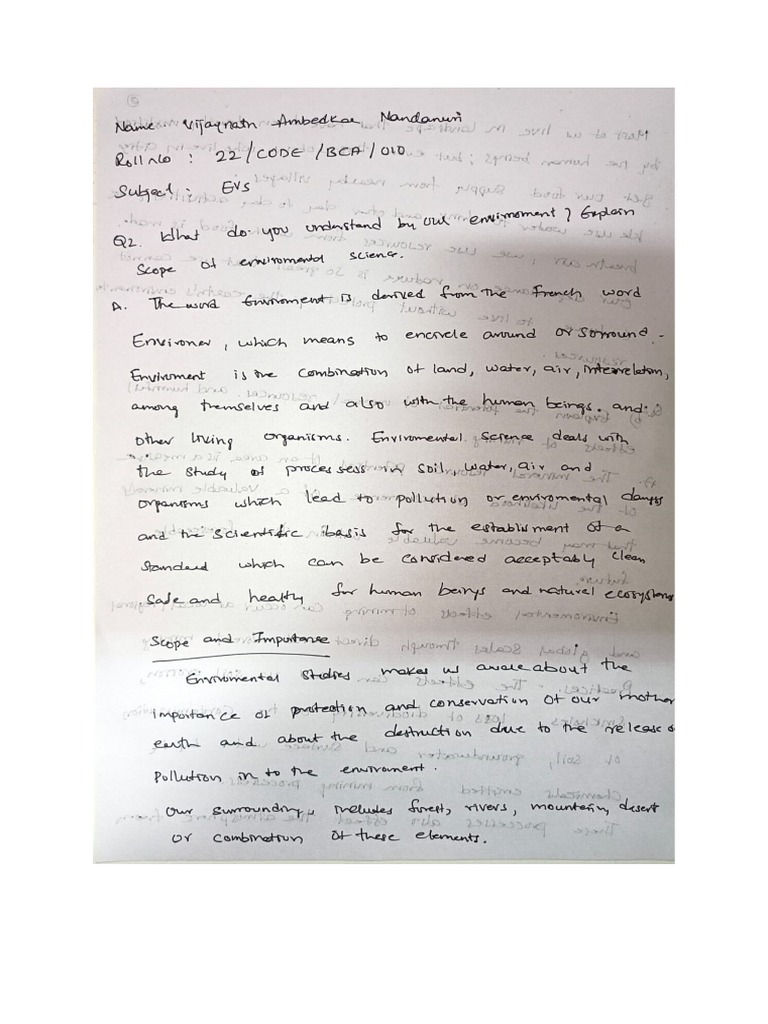 Name: Vijaynath Ambedkar Nandanuri
Roll No : 22/CODE/BCA/010
Subject : EVS
Q2. What do you understand by our enviroment? Explain
Scope of enviromental science.
A. The word Enviroment is derived from the French word
Environer, which means to encircle around or sorround.
Enviroment is the combination of land, water, air, interrelation,
among themselves and also with the human beings. and
other living organisms. Enviromental science deals with
the study of processess in soil, water, air and
organisms which lead to pollution or enviromental damages
and the scientific basis for the establisment of a
standard which can be considered acceptably clean
safe and healthy for human beings and natural ecosystems
Scope and Importance
Enviromental studies makes us aware about the
importance of protection and conservation of our mother
earth and about the destruction due to the release of
Pollution in to the enviroment.
Our surroundings includes forest, rivers, mountain, desert
or combination of these elements.